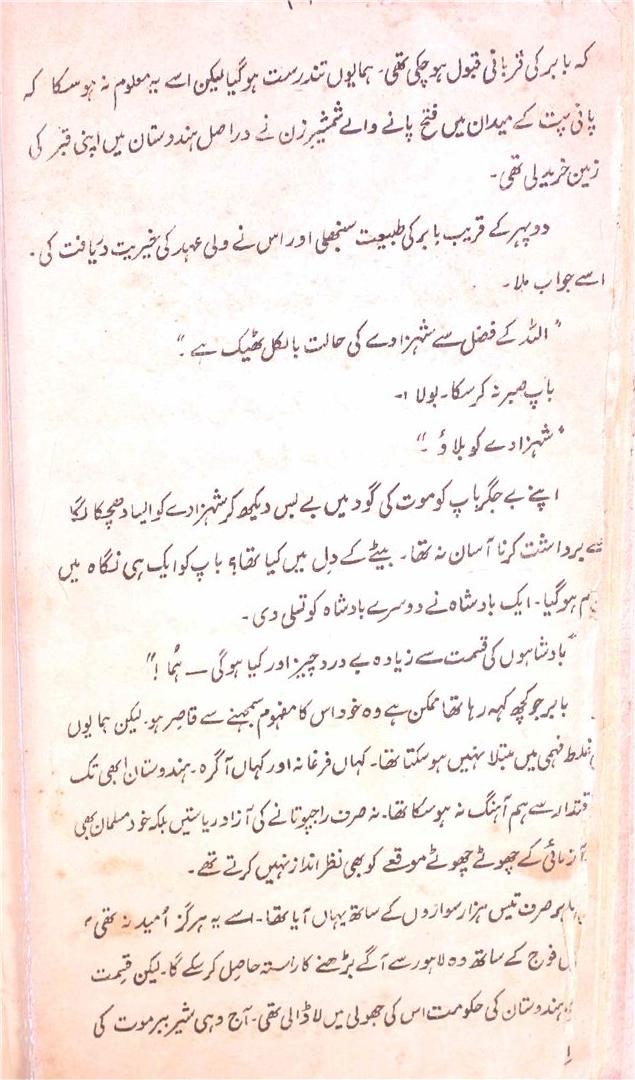 کہ بابر کی قربانی قبول ہو چکی تھی۔ ہمایوں تندرست ہو گیا لیکن اسے یہ معلوم نہ ہو سکا کہ
پانی پت کے میدان میں فتح پانے والے شمشیر زن نے دراصل ہندوستان میں اپنی قبر کی
زمین خرید لی تھی۔
دوپہر کے قریب بابر کی طبیعت سنبھلی اور اس نے ولی عہد کی خیریت دریافت کی۔
اسے جواب ملا۔
"اللہ کے فضل سے شہزادے کی حالت بالکل ٹھیک ہے۔"
باپ صبر نہ کر سکا۔ بولا :۔
"شہزادے کو بلاؤ۔"
اپنے بے جگر باپ کو موت کی گود میں بے بس دیکھ کر شہزادے کو ایسا دھچکا لگا
برداشت کرنا آسان نہ تھا۔ بیٹے کے دل میں کیا تھا؟ باپ کو ایک ہی نگاہ میں
ہو گیا۔ ایک بادشاہ نے دوسرے بادشاہ کو تسلی دی۔
"بادشاہوں کی قسمت سے زیادہ بے درد چیز اور کیا ہو گی — ہُما !"
بابر جو کچھ کہہ رہا تھا ممکن ہے وہ خود اس کا مفہوم سمجھنے سے قاصر ہو۔ لیکن ہمایوں
غلط فہمی میں مبتلا نہیں ہو سکتا تھا۔ کہاں فرغانہ اور کہاں آگرہ۔ ہندوستان ابھی تک
سے ہم آہنگ نہ ہو سکا تھا۔ نہ صرف راجپوتانے کی آزاد ریاستیں بلکہ خود مسلمان بھی
آزمائی کے چھوٹے چھوٹے موقعے کو بھی نظر انداز نہیں کرتے تھے۔
بابر صرف تیس ہزار سواروں کے ساتھ یہاں آیا تھا۔ اسے یہ ہرگز اُمید نہ تھی
فوج کے ساتھ وہ لاہور سے آگے بڑھنے کا راستہ حاصل کر سکے گا۔ لیکن قسمت
ہندوستان کی حکومت اس کی جھولی میں لا ڈالی تھی۔ آج وہی شیر ببر موت کی